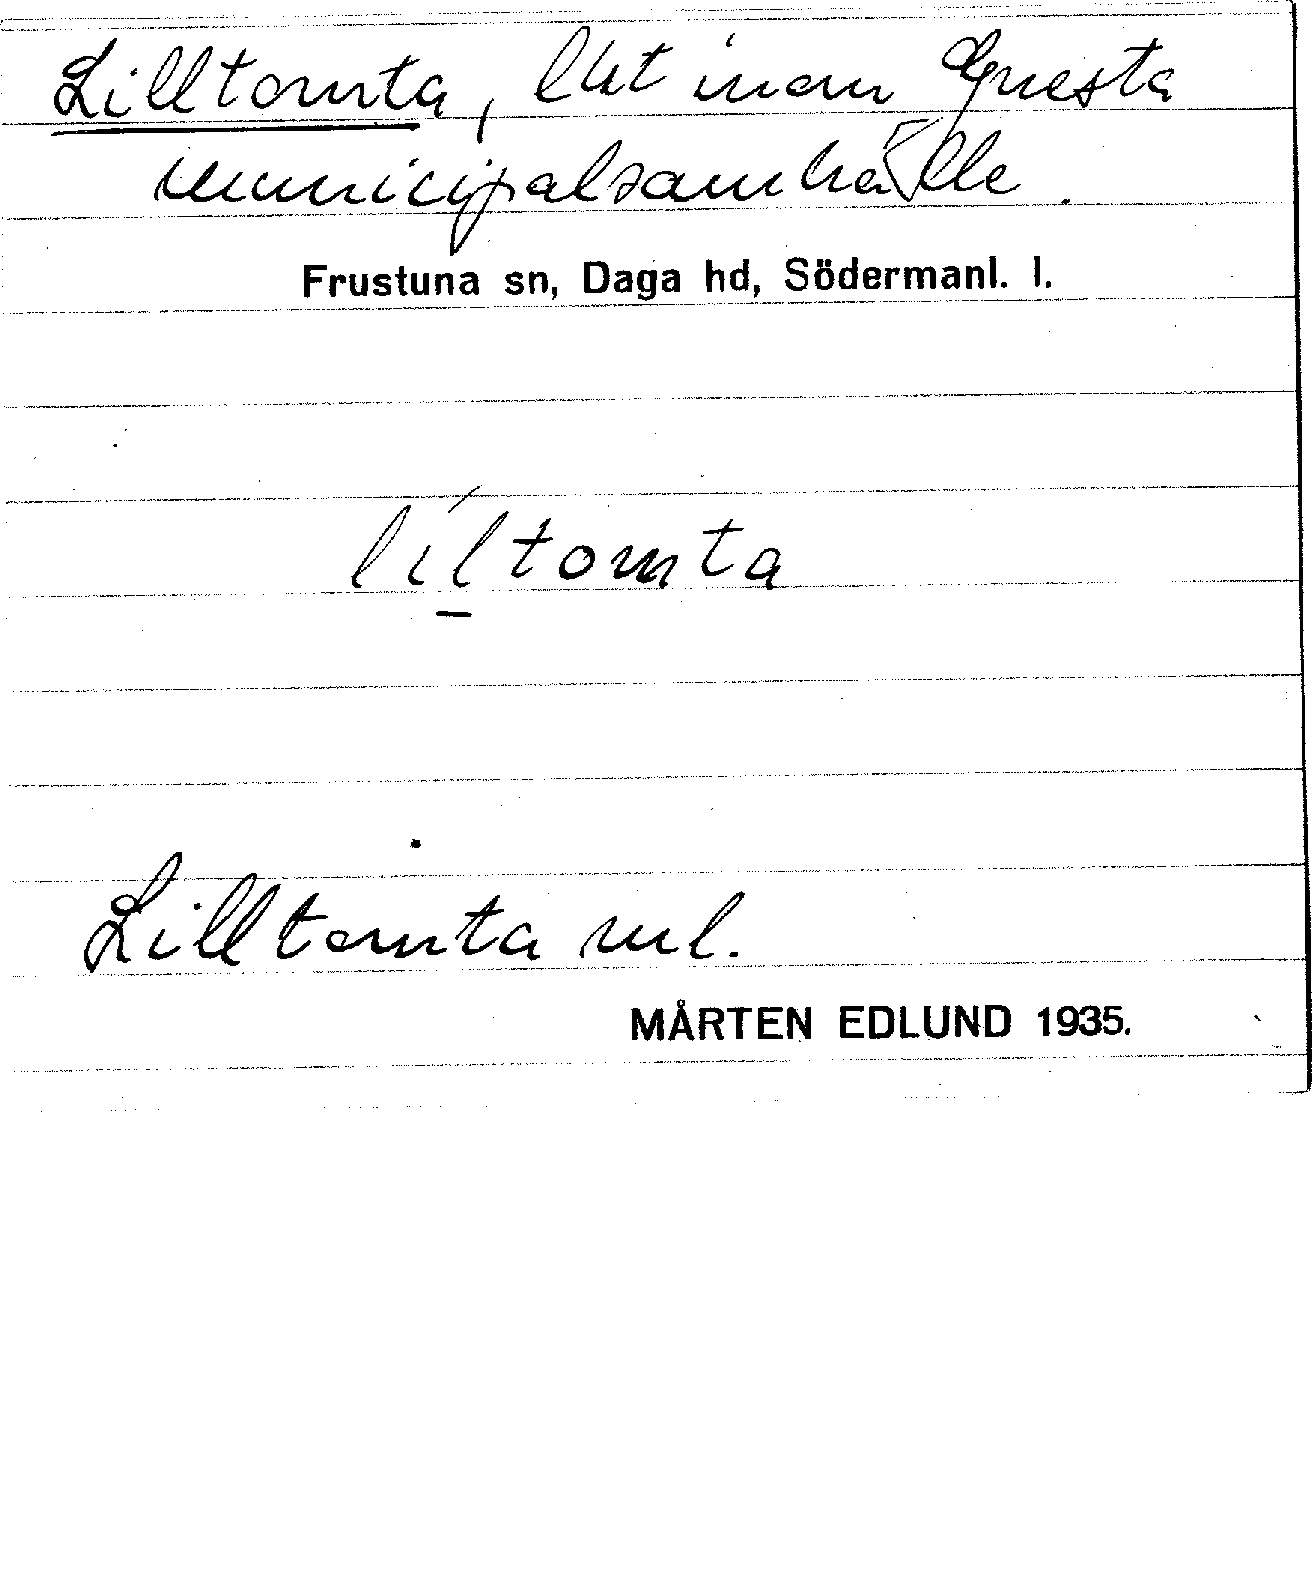 Lilltomta, lht inom Gnesta
municipalsamhälle.
Frustuna sn, Daga hd, Södermanl. l.
líltomta
Lilltomta ml.
MÅRTEN EDLUND 1935.